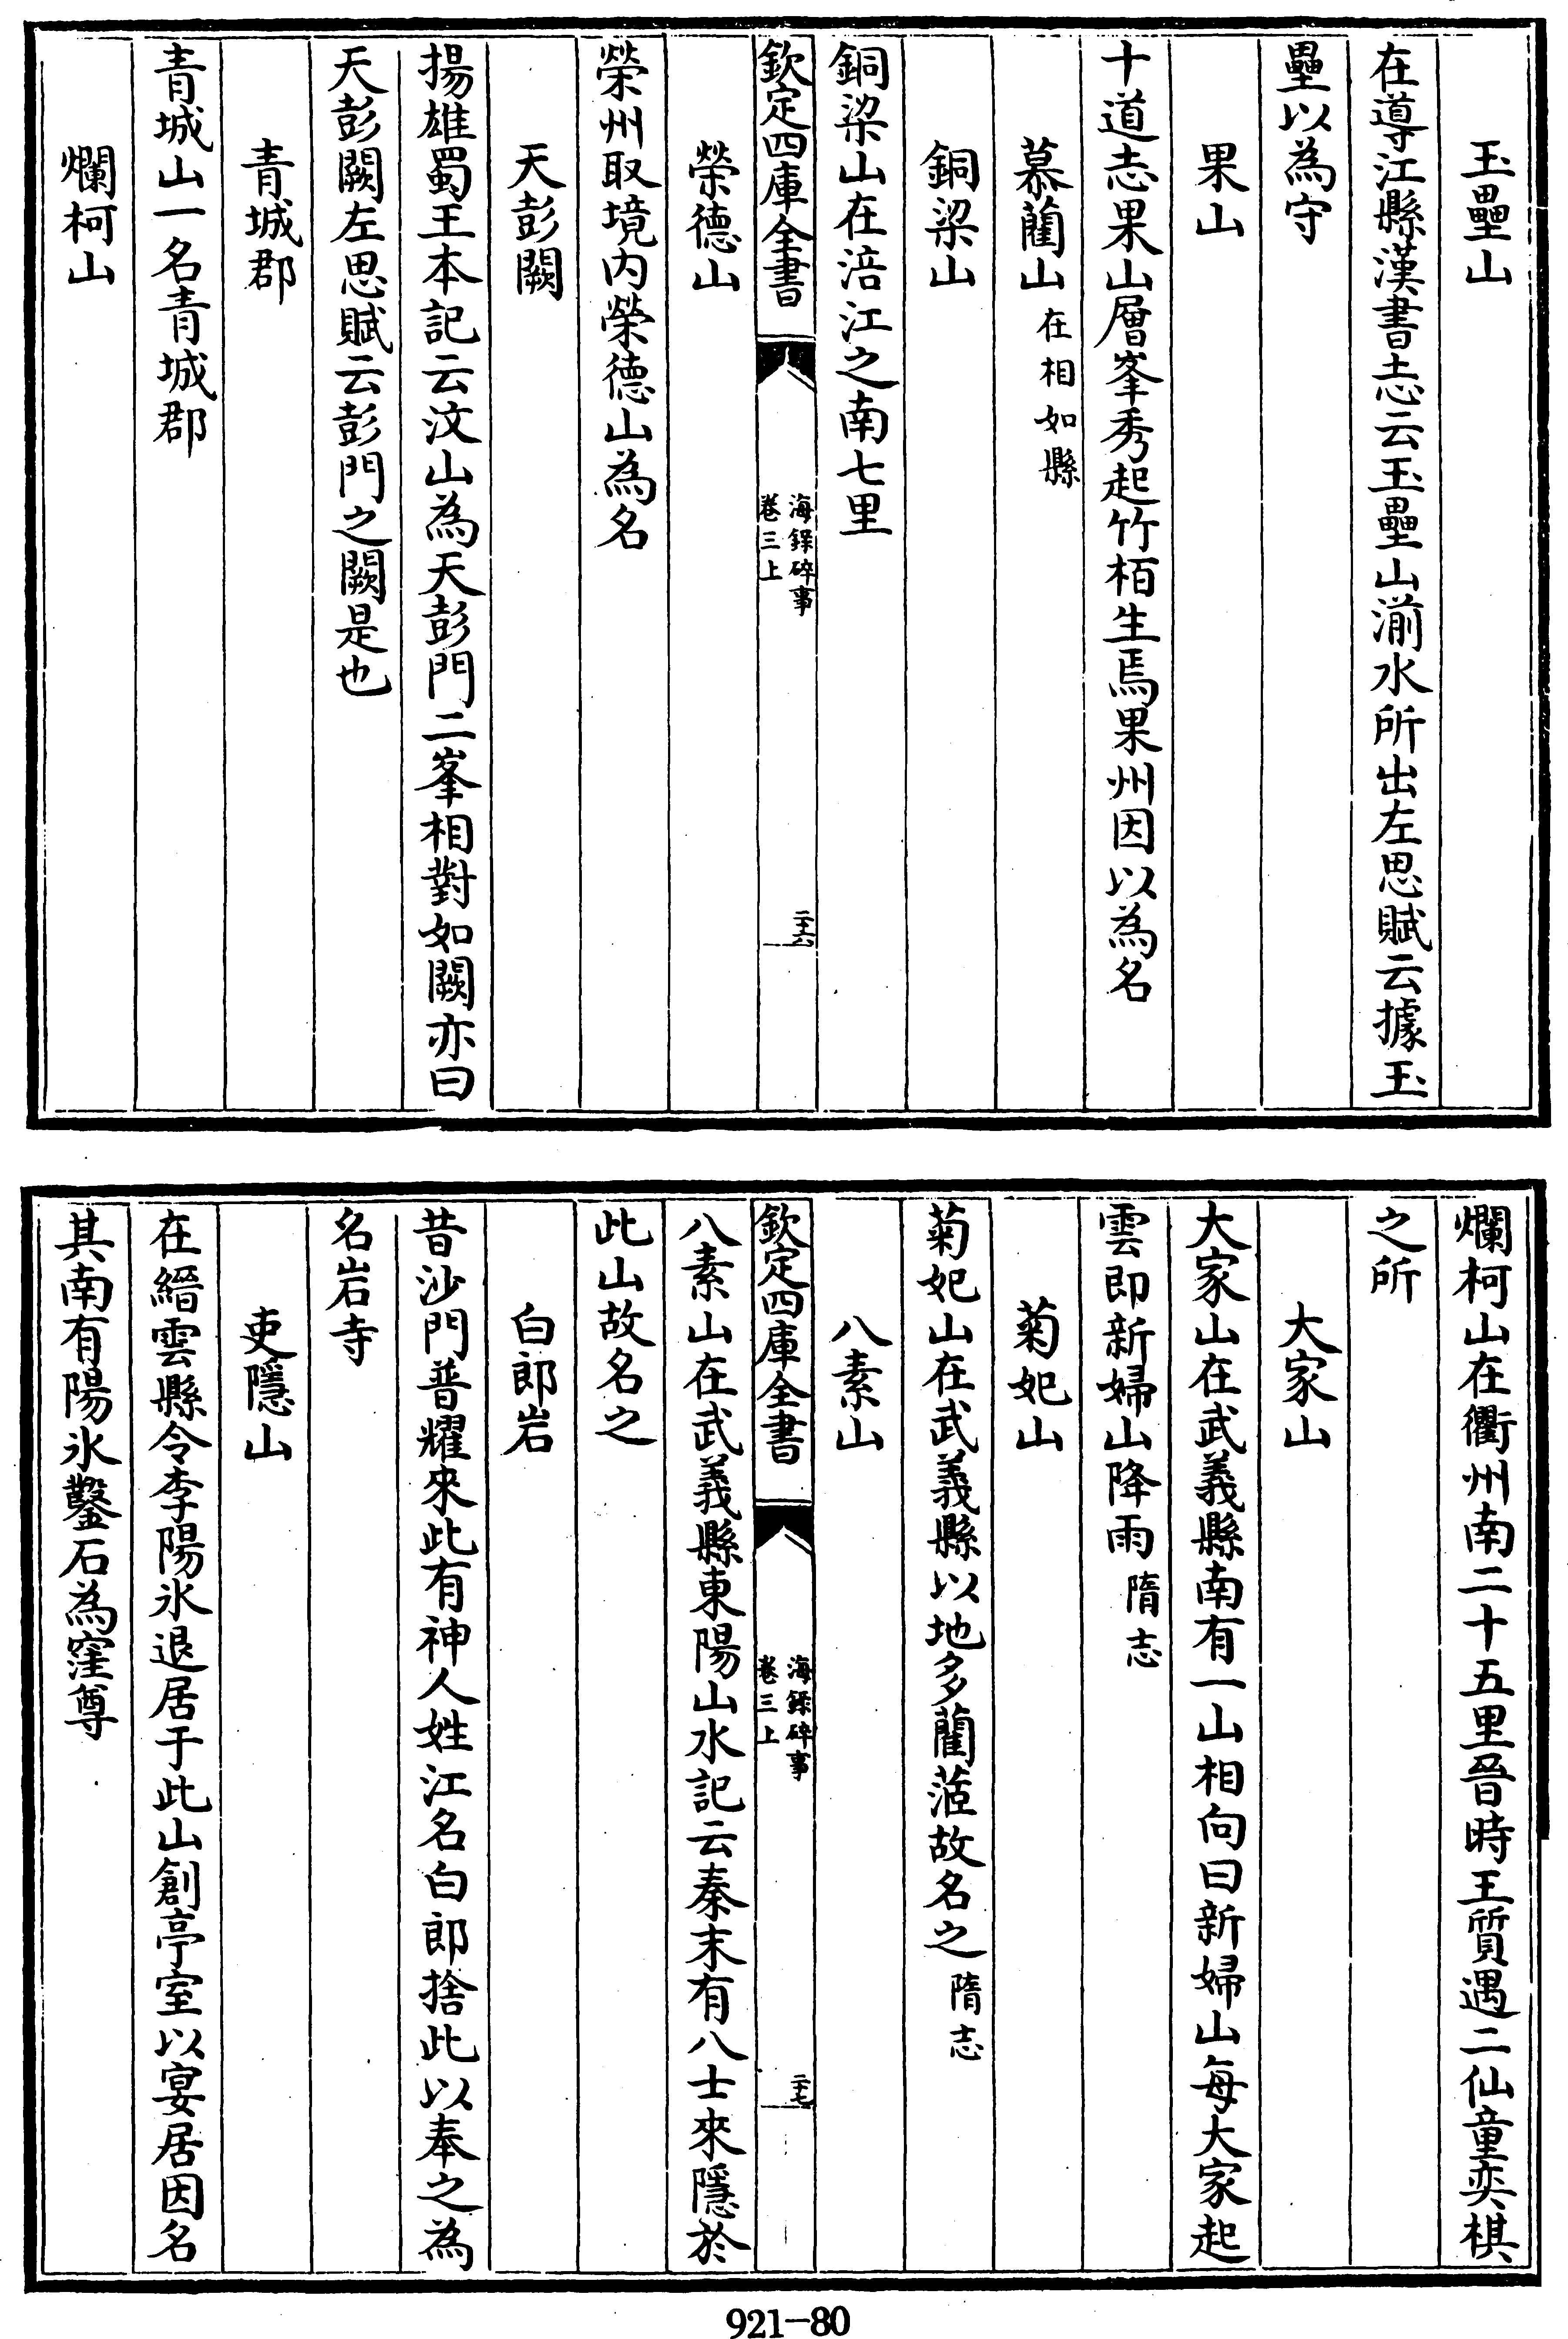 玉壘山
在導江縣漢書志云玉壘山湔水所出左思賦云據玉
壘以為守
果山
十道志果山層峯秀起竹栢生焉果州因以為名
慕藺山在相如縣
銅梁山
銅梁山在涪江之南七里
欽定四庫全書
海錄碎事
卷三上
二十六
榮德山
榮州取境内榮德山為名
天彭闕
揚雄蜀王本記云汶山為天彭門二峯相對如闕亦曰
天彭闕左思賦云彭門之闕是也
青城郡
青城山一名青城郡
爛柯山
爛柯山在衢州南二十五里晉時王質遇二仙童奕棋
之所
大家山
大家山在武義縣南有一山相向曰新婦山每大家起
雲即新婦山降雨隋志
菊妃山
菊妃山在武義縣以地多蘭蒞故名之隋志
八素山
欽定四庫全書
海錄碎事
卷三上
二十七
八素山在武義縣東陽山水記云秦末有八士來隱於
此山故名之
白郎岩
昔沙門普耀來此有神人姓江名白郎捨此以奉之為
名岩寺
吏隱山
在縉雲縣令李陽氷退居于此山創亭室以宴居因名
其南有陽氷鑿石為窪尊
921-80